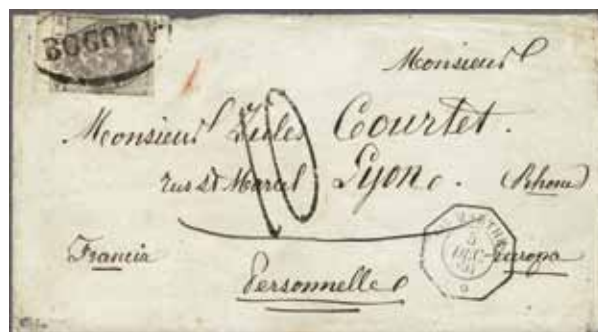 BOGOTA
Monsieur
Monsieur Jules Courtet.
10
rue St Marcel Lyon. (Rhone)
MARTHE
5
DEC
Francia
Europa
Personnelle